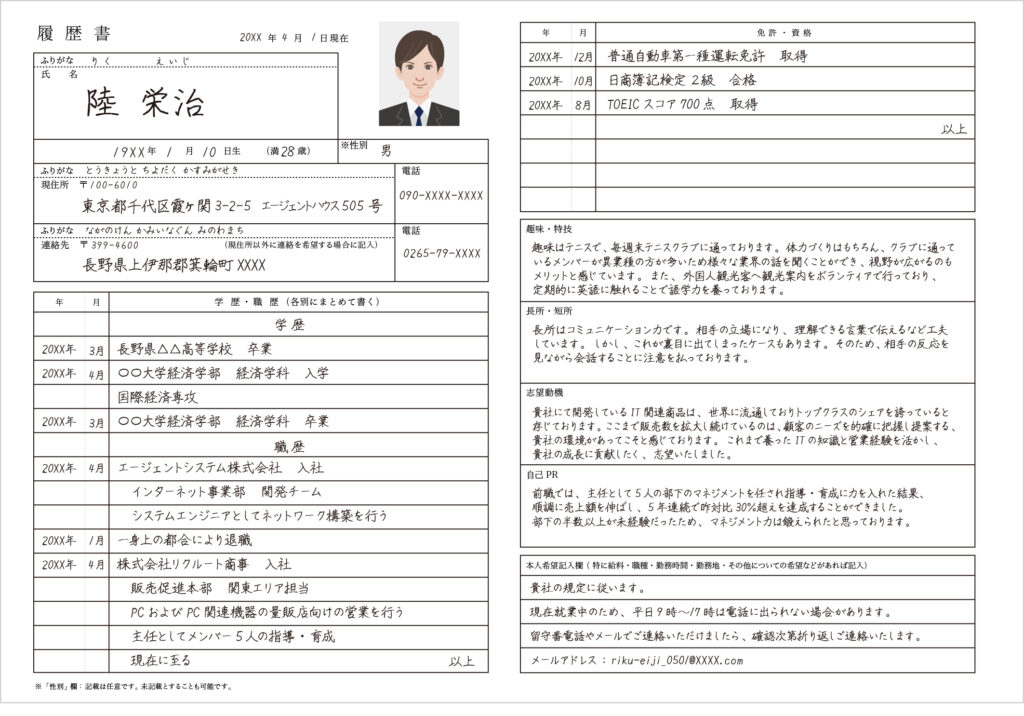 履歴書
20XX 年 4 月 1 日現在
ふりがな りく えいじ
氏 名
陸 栄治
19XX 年 1 月 10 日生 (満 28 歳)
※性別 男
ふりがな とうきょうと ちよだく かすみがせき
現住所 〒100-6010
東京都千代区霞ヶ関 3-2-5 エージェントハウス 505 号
電話
090-XXXX-XXXX
ふりがな ながのけん かみいなぐん みのわまち
連絡先 〒 399-4600 (現住所以外に連絡を希望する場合に記入)
長野県上伊那郡箕輪町 XXXX
電話
0265-79-XXXX
年 月 学 歴・職 歴(各別にまとめて書く)
学 歴
20XX年 3月 長野県△△高等学校 卒業
20XX年 4月 〇〇大学経済学部 経済学科 入学
国際経済専攻
20XX年 3月 〇〇大学経済学部 経済学科 卒業
職 歴
20XX年 4月 エージェントシステム株式会社 入社
インターネット事業部 開発チーム
システムエンジニアとしてネットワーク構築を行う
20XX年 1月 一身上の都合により退職
20XX年 4月 株式会社リクルート商事 入社
販売促進本部 関東エリア担当
PC および PC 関連機器の量販店向けの営業を行う
主任としてメンバー 5 人の指導・育成
現在に至る 以上
※「性別」欄:記載は任意です。未記載とすることも可能です。
年 月 免許・資格
20XX年 12月 普通自動車第一種運転免許 取得
20XX年 10月 日商簿記検定 2級 合格
20XX年 8月 TOEIC スコア 700 点 取得
以上
趣味・特技
趣味はテニスで、毎週末テニスクラブに通っております。体力づくりはもちろん、クラブに通って
いるメンバーが異業種の方が多いため様々な業界の話を聞くことができ、視野が広がるのも
メリットと感じています。また、外国人観光客へ観光案内をボランティアで行っており、
定期的に英語に触れることで語学力を養っております。
長所・短所
長所はコミュニケーション力です。相手の立場になり、理解できる言葉で伝えるなど工夫
しています。しかし、これが裏目に出てしまったケースもあります。そのため、相手の反応を
見ながら会話することに注意を払っております。
志望動機
貴社にて開発している IT 関連商品は、世界に流通しておりトップクラスのシェアを誇っていると
存じております。ここまで販売数を拡大し続けているのは、顧客のニーズを的確に把握し提案する、
貴社の環境があってこそと感じております。これまで養った IT の知識と営業経験を活かし、
貴社の成長に貢献したく、志望いたしました。
自己 PR
前職では、主任として 5 人の部下のマネジメントを任され指導・育成に力を入れた結果、
順調に売上額を伸ばし、5 年連続で昨対比 30%超えを達成することができました。
部下の半数以上が未経験だったため、マネジメント力は鍛えられたと思っております。
本人希望記入欄(特に給料・職種・勤務時間・勤務地・その他についての希望などがあれば記入)
貴社の規定に従います。
現在就業中のため、平日 9 時〜17 時は電話に出られない場合があります。
留守番電話やメールでご連絡いただけましたら、確認次第折り返しご連絡いたします。
メールアドレス : riku-eiji_0501@XXXX.com